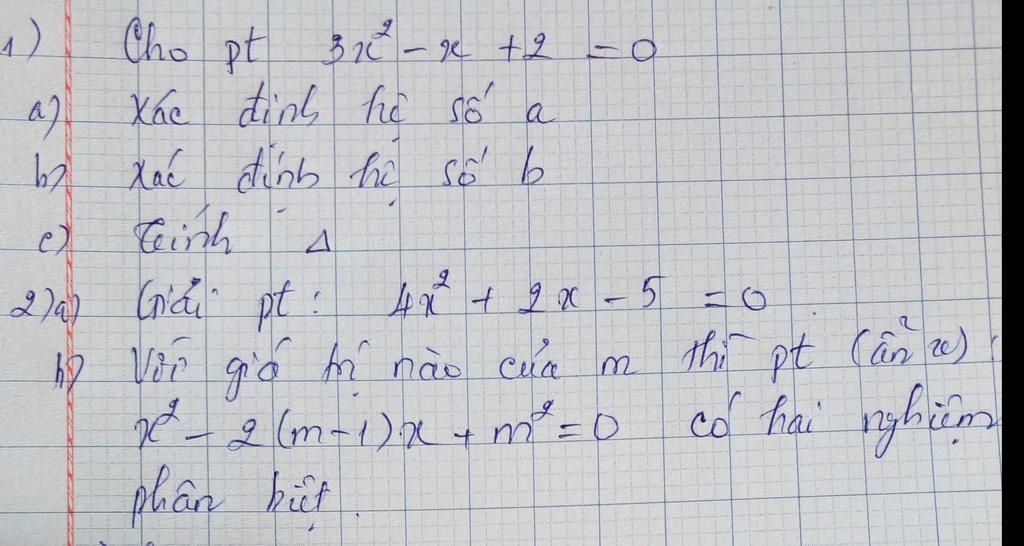 1) Cho pt 3x² - x + 2 = 0
a) Xác định hệ số a
b) Xác định hệ số b
c) Tính Δ
2)a) Giải pt: 4x² + 2x - 5 = 0
b) Với giá trị nào của m thì pt (ẩn x)
x² - 2(m-1)x + m² = 0 có hai nghiệm
phân biệt.